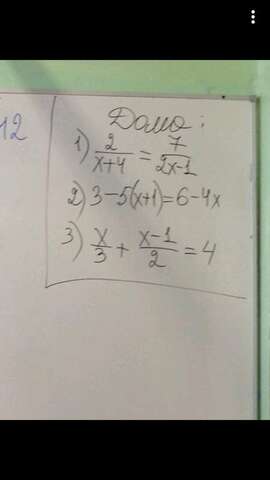 12
Дома:
1) 2/(x+4) = 7/(2x-1)
2) 3-5(x+1)=6-4x
3) x/3 + (x-1)/2 = 4